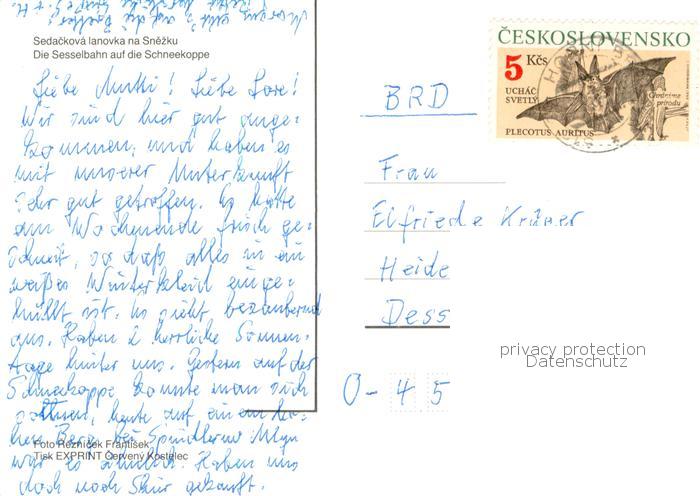 Sedačková lanovka na Sněžku
Die Sesselbahn auf die Schneekoppe
Liebe Mutti! Liebe Lore!
Wir sind hier gut ange=
kommen, und haben es
mit unserer Unterkunft
sehr gut getroffen. Es hatte
am Wochenende frisch ge=
schneit, so daß alles in ein
weißes Winterkleid einge=
hüllt ist. Es sieht bezaubernd
aus. Haben 2 herrliche Sonnen=
tage hinter uns. Gestern auf der
Schneekoppe konnte man sich
sonnen, heute auf einem ho=
hen Berg bei Spindlerův Mlýn
war es ähnlich. Haben uns
doch noch Skier gekauft.
Foto Řezníček František
Tisk EXPRINT Červený Kostelec
ČESKOSLOVENSKO
5 Kčs
UCHÁČ
SVETLÝ
Chráníme
přírodu
PLECOTUS AURITUS
BRD
Frau
Elfriede Krämer
Heide
Dess
O-45
privacy protection
Datenschutz